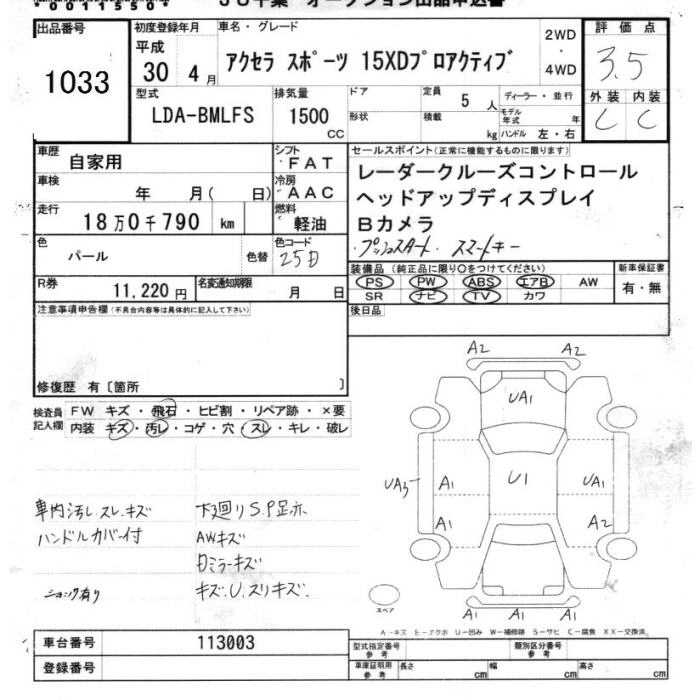 出品番号
1033
初度登録年月
平成
30 4月
車名・グレード
アクセラ スポーツ 15XDプロアクティブ
2WD
・
4WD
評価点
3.5
外装 内装
C C
型式
LDA-BMLFS
排気量
1500
CC
ドア
形状
定員 5 人
積載 kg
ディーラー・並行
モデル年式 年
ハンドル 左・右
車歴 自家用
シフト FAT
車検 年 月( 日)
冷房 AAC
走行 18万0千790 km
燃料 軽油
色 パール 色替
色コード 25D
R券 11,220円
名変通知期限 月 日
セールスポイント(正常に機能するものに限ります)
レーダークルーズコントロール
ヘッドアップディスプレイ
Bカメラ
・プッシュスタート ・スマートキー
装備品(純正品に限り○をつけてください)
PS PW ABS エアB AW
SR ナビ TV カワ
新車保証書
有・無
後日品
注意事項申告欄(不具合内容等は具体的に記入して下さい)
修復歴 有〔箇所 〕
検査員記入欄
FW キズ・飛石・ヒビ割・リペア跡・×要
内装 キズ・汚レ・コゲ・穴・スレ・キレ・破レ
車内汚レ.スレ.キズ
ハンドルカバー付
ショック有り
下廻りS.P足ホ
AWキズ
Dミラーキズ
キズ.U.スリキズ
A2 A2
UA1
UA3 A1 U1 UA1
A1 A2
A1 A1 A1
スペア
A-キズ E-エクボ U-凹み W-補修跡 S-サビ C-腐食 XX-交換済
車台番号 113003
登録番号
型式指定番号
参考
類別区分番号
参考
車庫証明用
参考
長さ cm 幅 cm 高さ cm